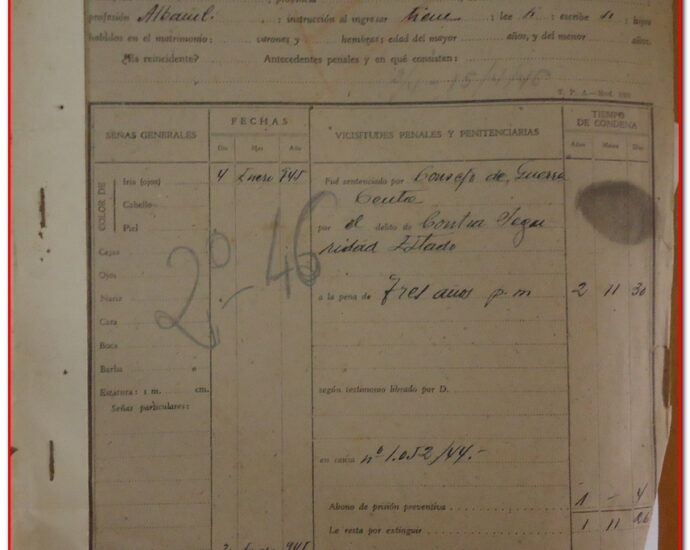 profesión Albañil. : instrucción al ingresar tiene : lee si : escribe si : hijos
habidos en el matrimonio: varones y hembras; edad del mayor años, y del menor años.
¿Es reincidente? Antecedentes penales y en qué consisten:
T. P. A.—Mod.
SEÑAS GENERALES
FECHAS
Día Mes Año
VICISITUDES PENALES Y PENITENCIARIAS
TIEMPO DE CONDENA
Años Meses Días
COLOR DE
Iris (ojos)
Cabello
Piel
Cejas
Ojos
Nariz
Cara
Boca
Barba
Estatura: 1 m. cm.
Señas particulares:
4 Enero 945
2º - 46
Fué sentenciado por Consejo de Guerra
por el delito de Contra Segu
ridad Estado
a la pena de Tres años p.m 2 11 30
según testimonio librado por D.
en causa nº 1.052/44.-
Abono de prisión preventiva 1 - 4
Le resta por extinguir 1 11 26
Enero 945